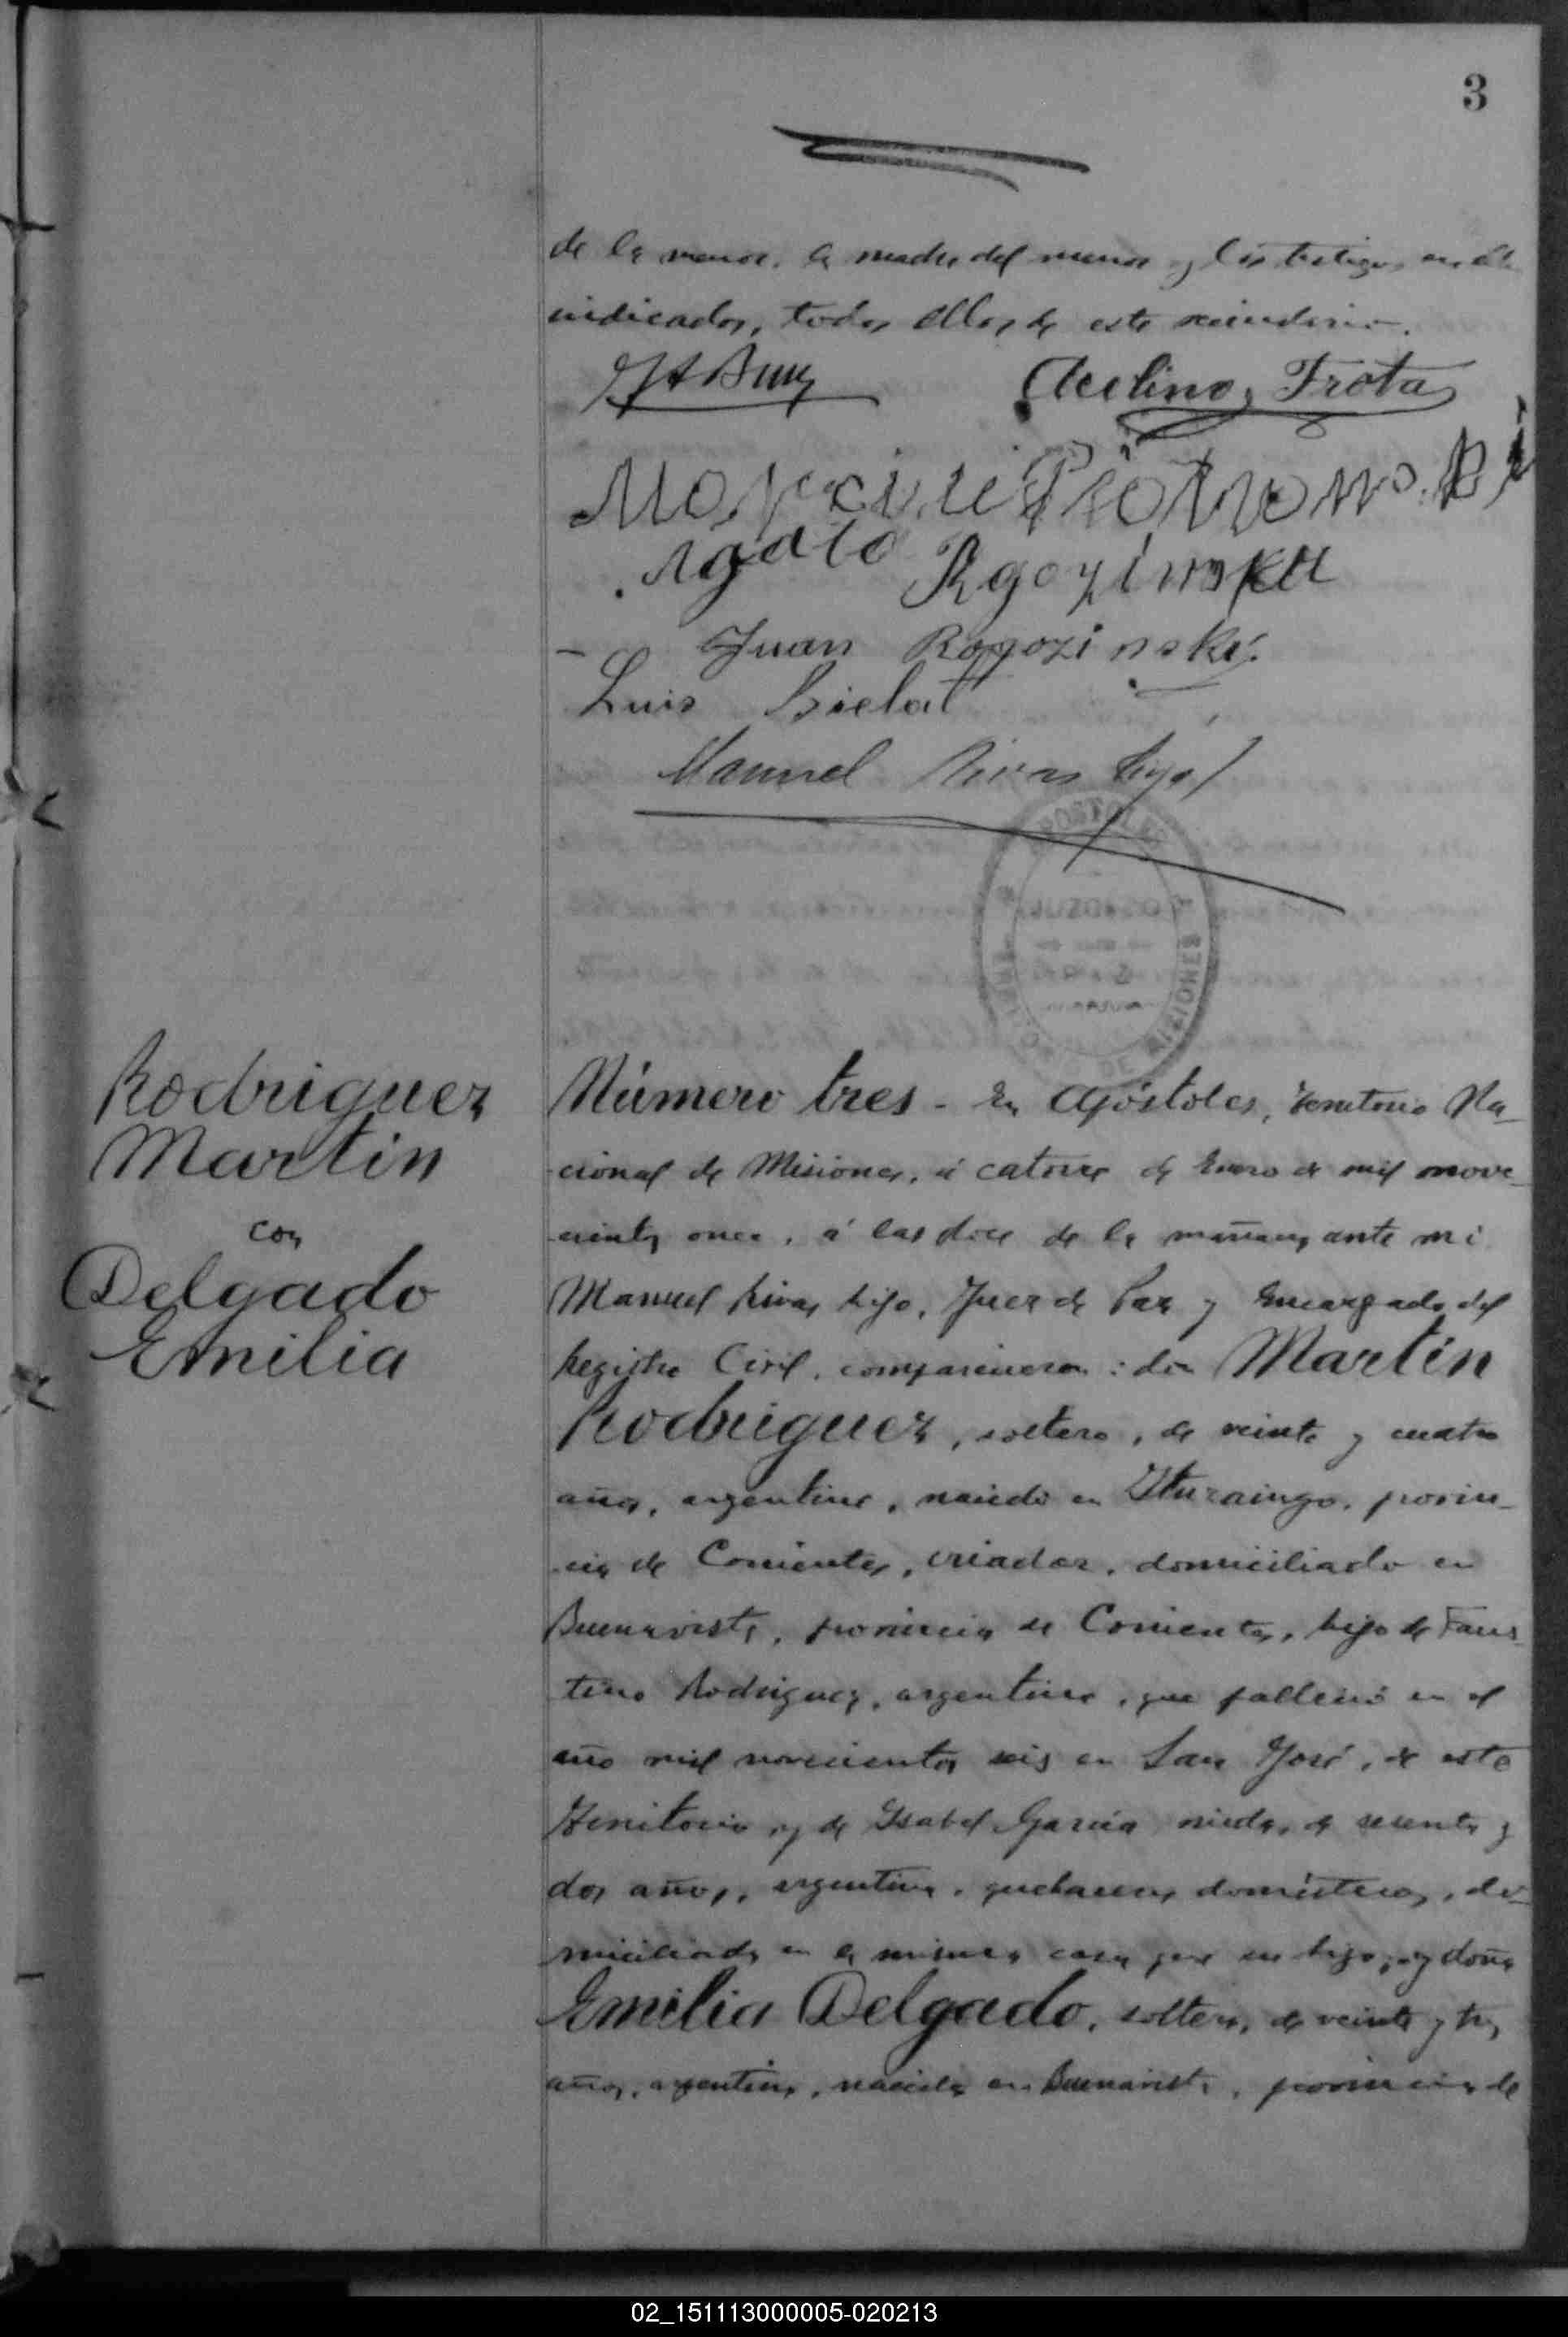 3
de la menor, la madre del menor y los testigos
indicados, todos ellos de este vecindario.
Avelino Frota
Agata Rgozinska
Juan Rogozinski
Luis Bielat
Manuel Rivas hijo
APOSTOLES
JUZGADO
DE MISIONES
Rodriguez
Martin
con
Delgado
Emilia
Número tres - En Apóstoles, Territorio Na-
cional de Misiones, á catorce de Enero de mil nove-
cientos once, á las doce de la mañana, ante mi
Manuel Rivas hijo, Juez de Paz y Encargado del
Registro Civil, comparecieron: don Martin
Rodriguez, soltero, de veinte y cuatro
años, argentino, nacido en Ituzaingo, provin-
cia de Corrientes, criador, domiciliado en
Buenavista, provincia de Corrientes, hijo de Faus
tino Rodriguez, argentino, que falleció en el
año mil novecientos seis en San José, de este
Territorio, y de Isabel Garcia viuda, de sesenta y
dos años, argentina, quehaceres domésticos, do-
miciliada en la misma casa que su hijo; y doña
Emilia Delgado, soltera, de veinte y tres
años, argentina, nacida en Buenavista, provincia de
02_151113000005-020213